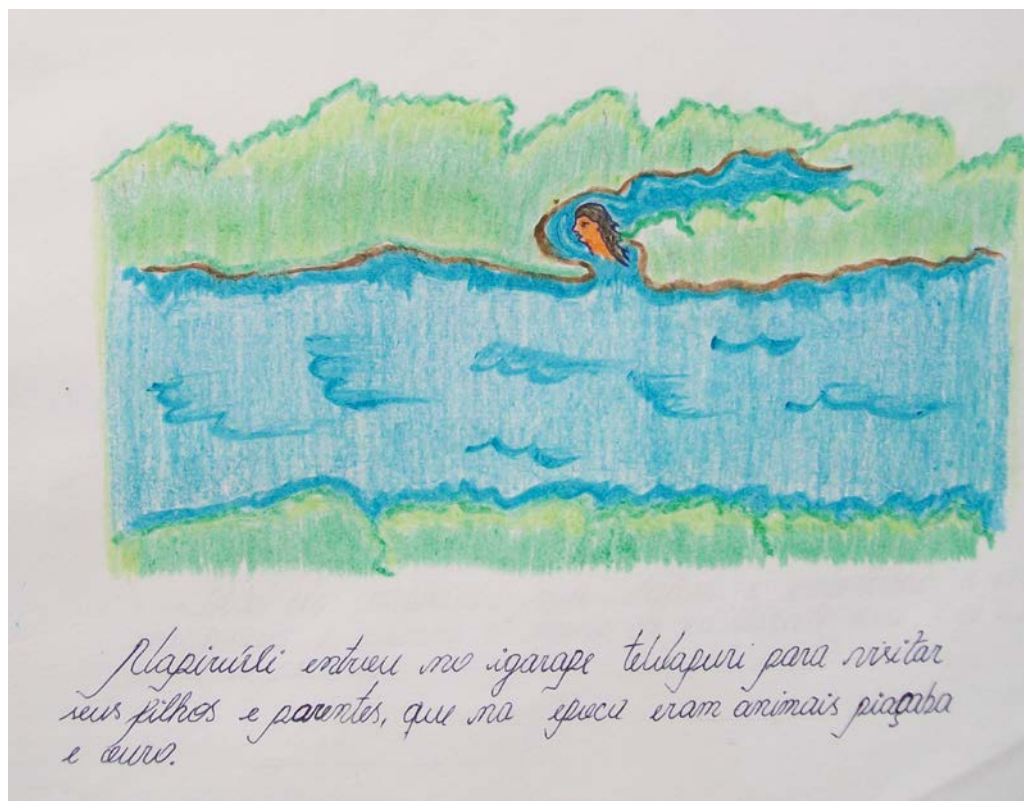 entrou no igarape para visitar
seus filhos e parentes, que na epoca eram animais piaçaba
e ouro.